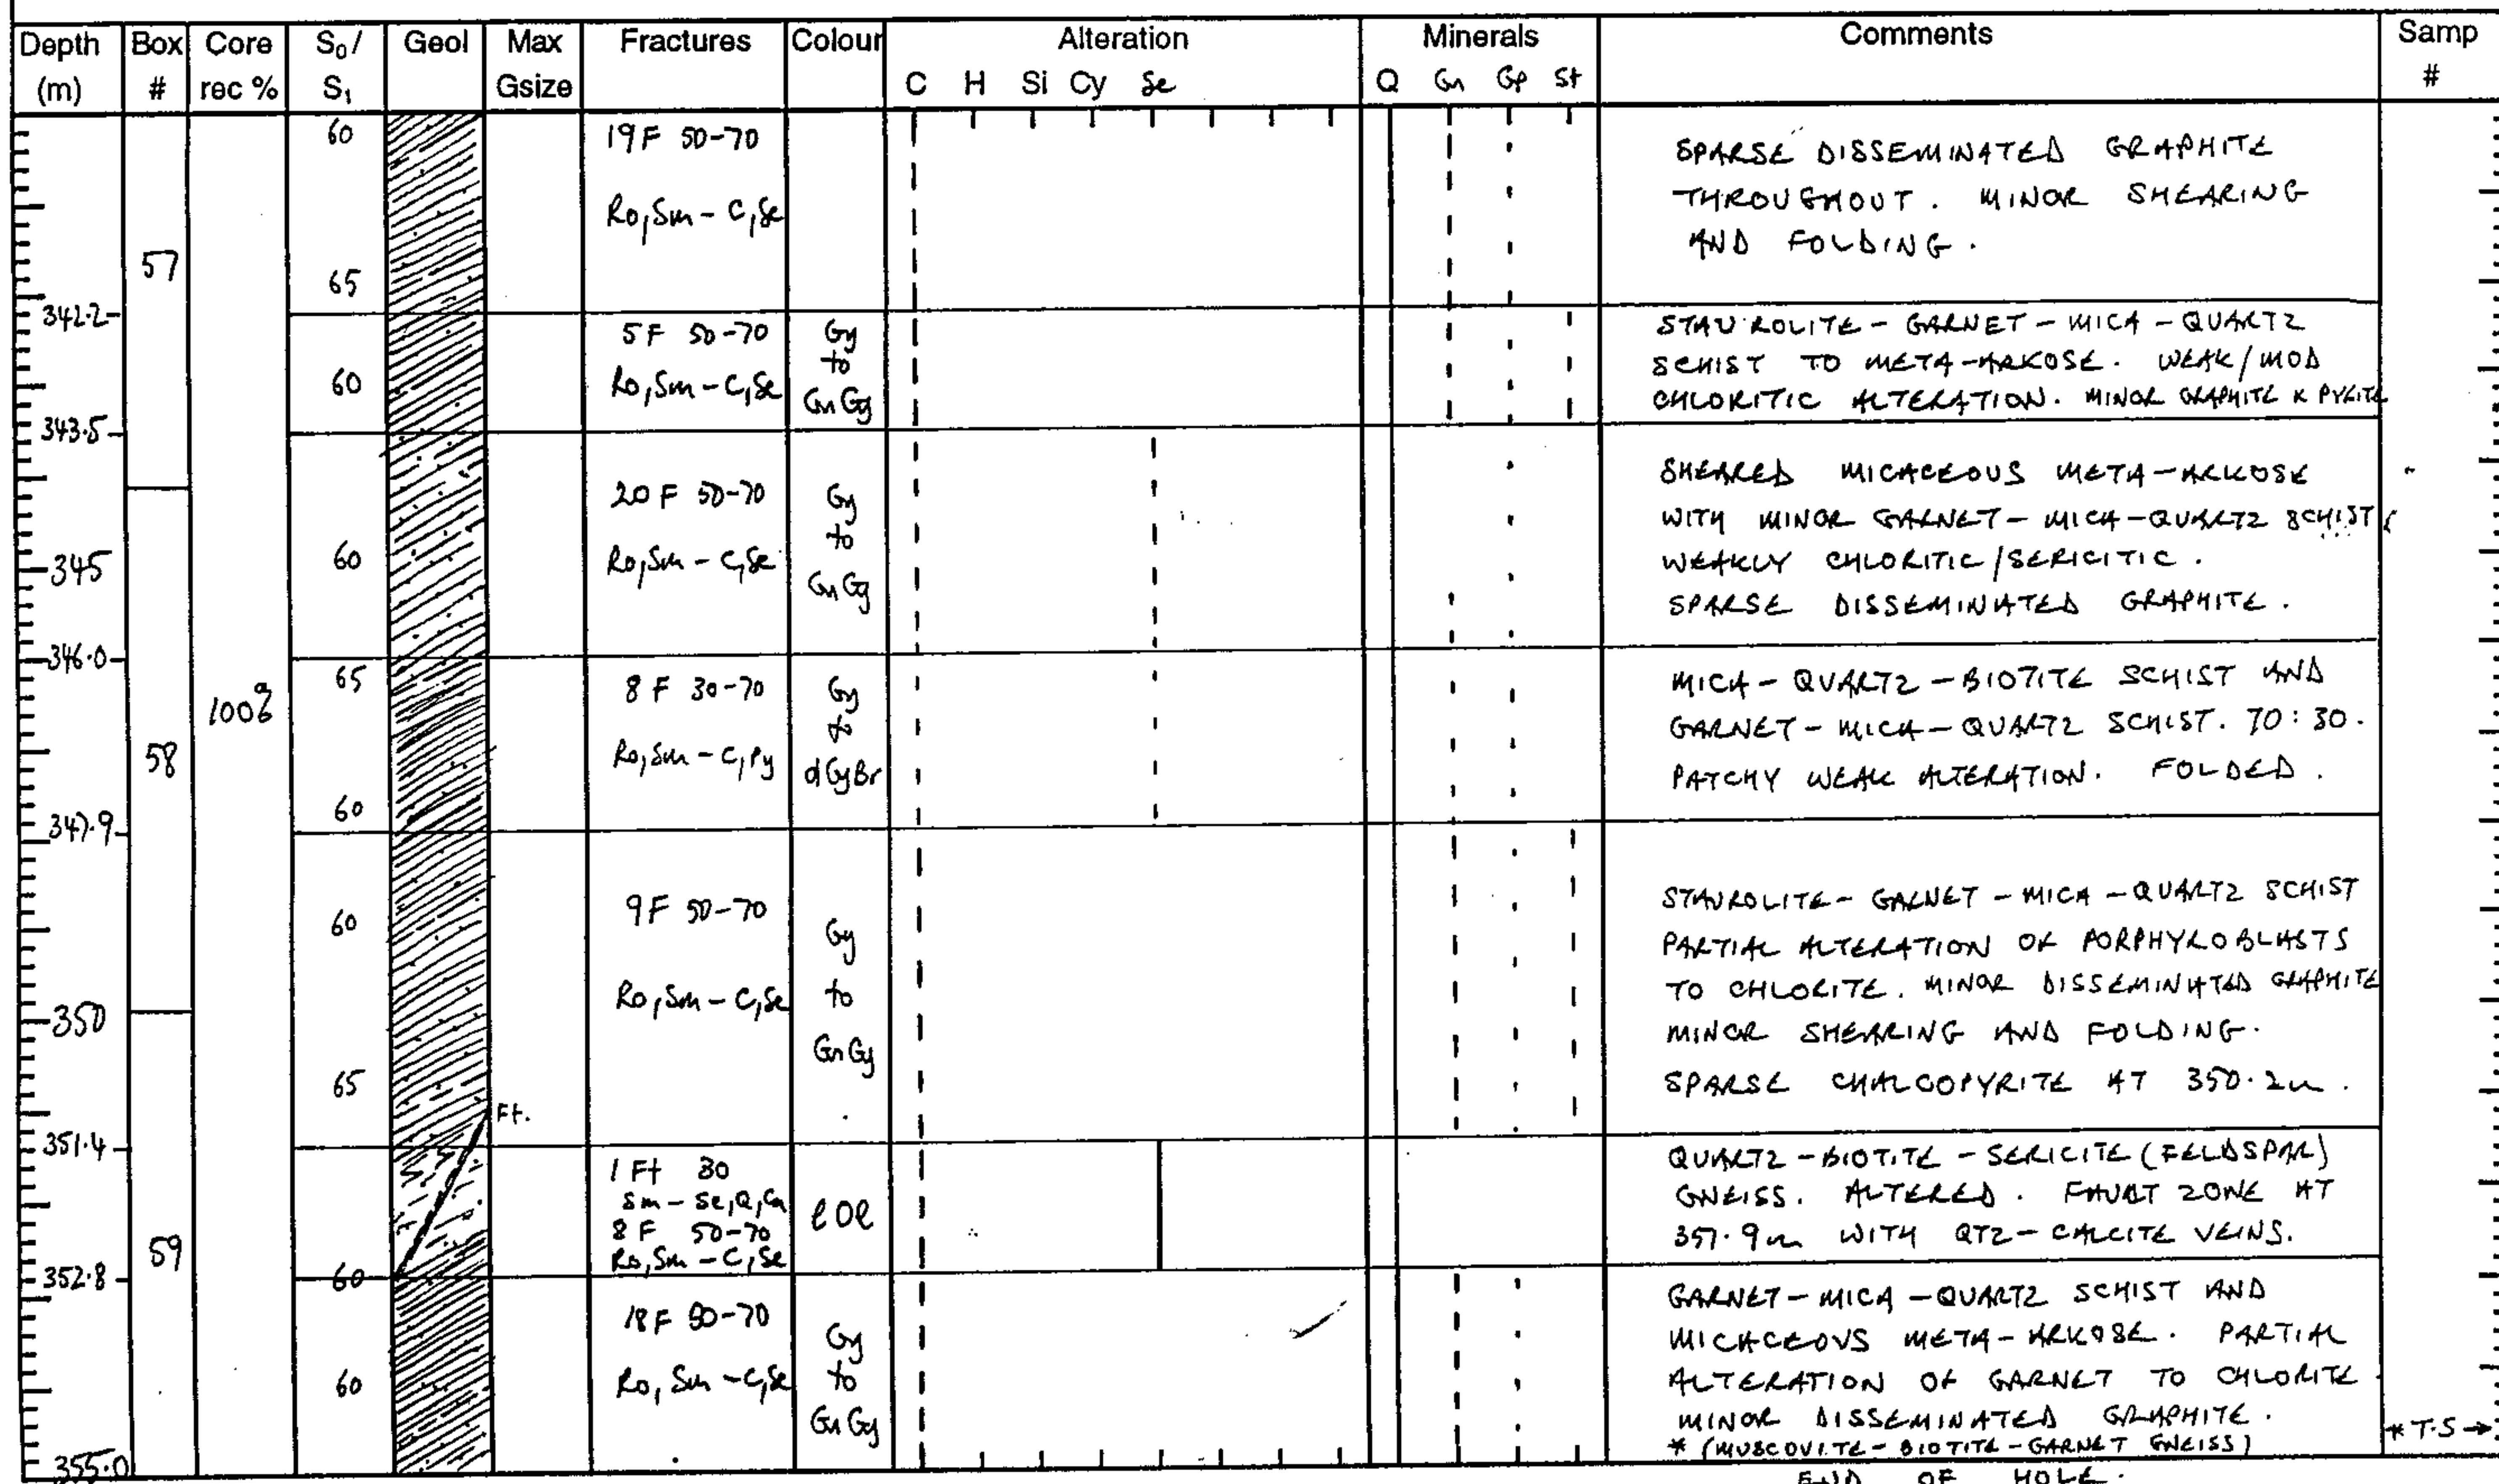 Depth Box Core S₀/ Geol Max Fractures Colour Alteration Minerals Comments Samp
(m) # rec % S₁ Gsize C H Si Cy Se Q Gn Gp St #
57
100%
60
19F 50-70
Ro,Sm - C,Se
65
SPARSE DISSEMINATED GRAPHITE
THROUGHOUT. MINOR SHEARING
AND FOLDING.
342.2
60
5F 50-70
Ro,Sm - C,Se
Gy
to
GnGy
STAUROLITE - GARNET - MICA - QUARTZ
SCHIST TO META-ARKOSE. WEAK/MOD
CHLORITIC ALTERATION. MINOR GRAPHITE & PYRITE
343.5
58
345
60
20F 50-70
Ro,Sm - C,Se
Gy
to
GnGy
SHEARED MICACEOUS META-ARKOSE
WITH MINOR GARNET-MICA-QUARTZ SCHIST
WEAKLY CHLORITIC/SERICITIC.
SPARSE DISSEMINATED GRAPHITE.
346.0
65
8F 30-70
Ro,Sm - C,Py
60
Gy
to
dGyBr
MICA - QUARTZ - BIOTITE SCHIST AND
GARNET - MICA - QUARTZ SCHIST. 70:30.
PATCHY WEAK ALTERATION. FOLDED.
347.9
60
9F 50-70
Ro,Sm - C,Se
Gy
to
GnGy
350
65
Ft.
STAUROLITE - GARNET - MICA - QUARTZ SCHIST
PARTIAL ALTERATION OF PORPHYROBLASTS
TO CHLORITE. MINOR DISSEMINATED GRAPHITE
MINOR SHEARING AND FOLDING.
SPARSE CHALCOPYRITE AT 350.2m.
351.4
59
1 Ft 30
Sm - Se,Q,Ca
8F 50-70
Ro,Sm - C,Se
lOl
QUARTZ - BIOTITE - SERICITE (FELDSPAR)
GNEISS. ALTERED. FAULT ZONE AT
351.9m WITH QTZ - CALCITE VEINS.
352.8
60
18F 50-70
Ro,Sm - C,Se
60
Gy
to
GnGy
GARNET - MICA - QUARTZ SCHIST AND
MICACEOUS META-ARKOSE. PARTIAL
ALTERATION OF GARNET TO CHLORITE
MINOR DISSEMINATED GRAPHITE.
* (MUSCOVITE - BIOTITE - GARNET GNEISS)
* T.S →
355.0
END OF HOLE.